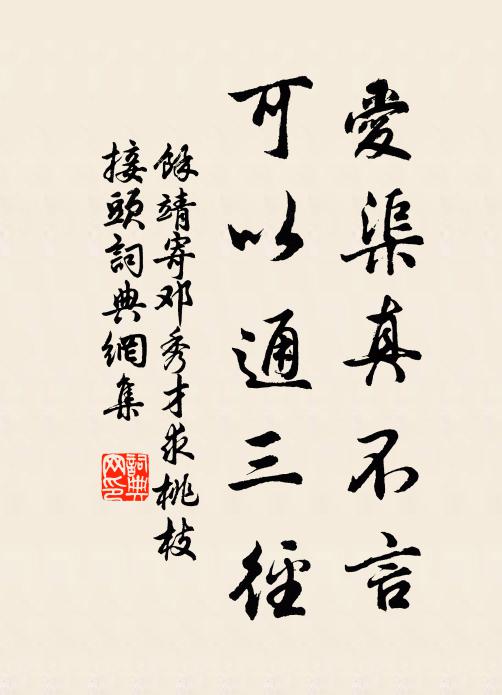 愛渠真不言
可以通三徑
餘靖寄邓秀才求桃枝
接頭詞典網集
詞典
网印